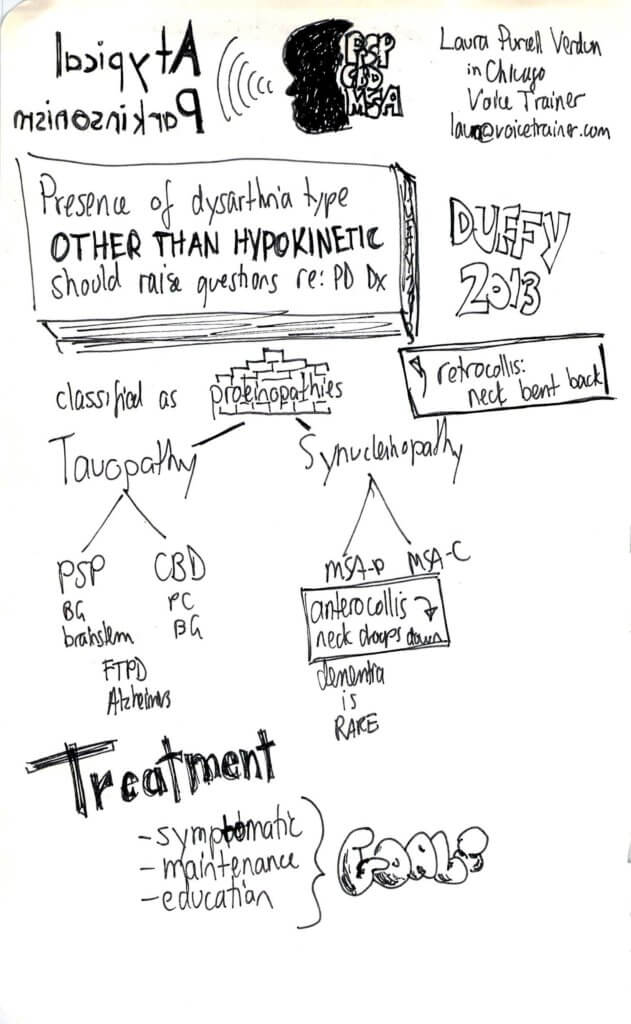 Atypical
Parkinsonism
PSP
CBD
MSA
Laura Purcell Verdun
in Chicago
Voice Trainer
laura@voicetrainer.com
Presence of dysarthria type
OTHER THAN HYPOKINETIC
should raise questions re: PD Dx
DUFFY
2013
retrocollis:
neck bent back
classified as proteinopathies
Tauopathy
Synucleinopathy
PSP
BG
brainstem
CBD
PC
BG
FTPD
Alzheimers
MSA-P
MSA-C
anterocollis
neck droops down
dementia
is
RARE
Treatment
- symptomatic
- maintenance
- education
GOALS